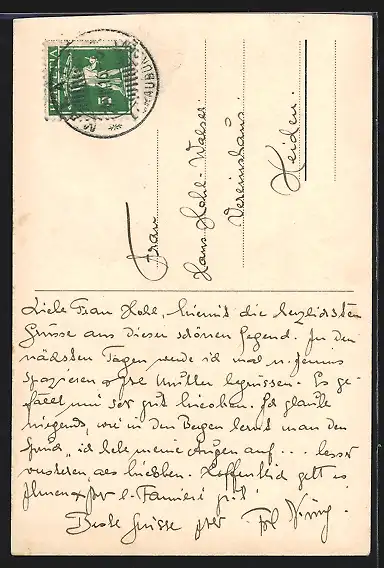 HELVETIA
5
Frau
Hans Hohl-Walser
Vereinshaus
Heiden.
Liebe Frau Hohl, hiermit die herzlichsten
Grüsse aus dieser schönen Gegend. In den
nächsten Tagen werde ich mal n.
spazieren & Ihre Mutter begrüssen. Es ge-
fällt mir sehr gut hieoben. Ich glaube
niegends, wie in den Bergen lernt man den
"ich hebe meine Augen auf... besser
verstehen, als hieoben. Hoffentlich geht es
Ihnen & Ihr l. Familie gut!
Beste Grüsse Ihre Frl.